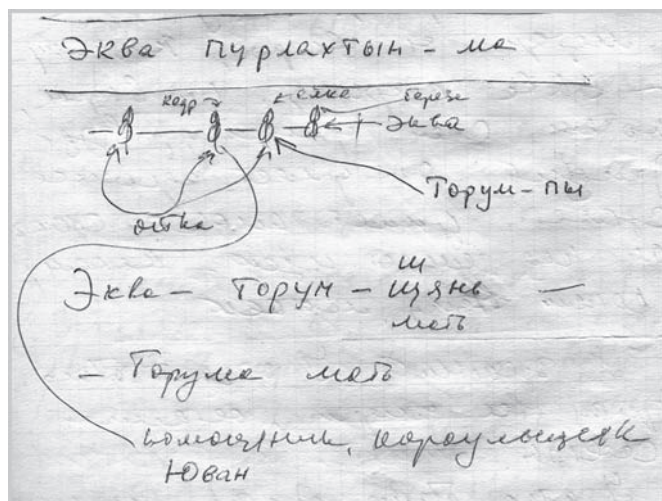 Эква пурлахтын - ма
кедр елка береза
Эква
Торум-пы
остка
Эква - Торум - щянь -
ш
мать
- Торума мать
помощник, караульщик
Юван